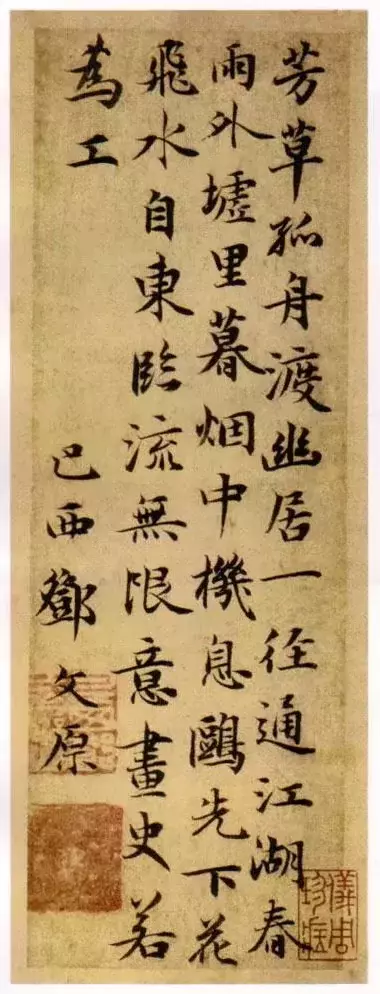 芳草孤舟渡幽居一径通江湖春
雨外墟里暮烟中機息鷗先下花
飛水自東臨流無限意畫史若
為工
巴西鄧文原
儀周珍藏